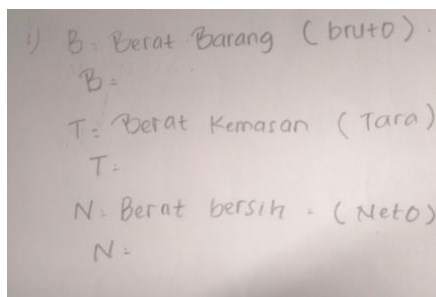 i) B = Berat Barang (bruto).
B =
T = Berat Kemasan (Tara)
T =
N = Berat bersih. (Neto)
N =